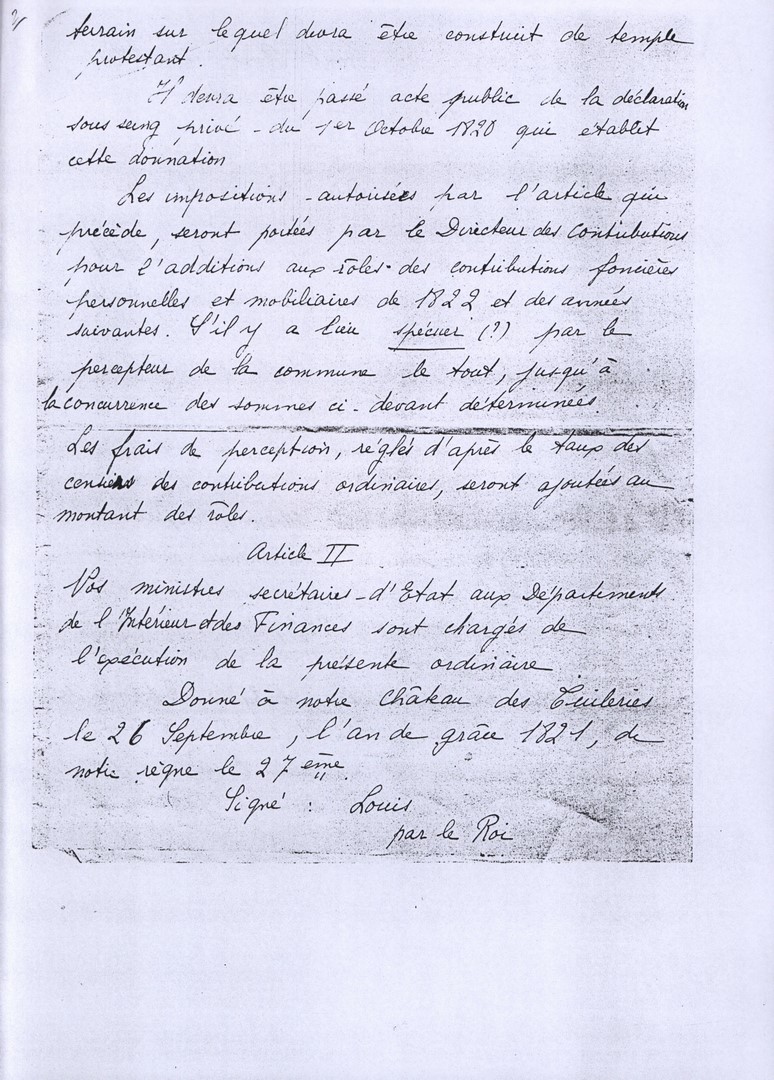 terrain sur lequel devra être construit de temple
protestant.
Il devra être passé acte public de la déclaration
sous seing privé - du 1er Octobre 1820 qui établit
cette dounation
Les impositions - autorisées par l'article qui
précède, seront portées par le Directeur des Contributions
pour l'additions aux rôles - des contributions foncières
personnelles et mobiliaires de 1822 et des années
suivantes. S'il y a lieu spécuer (?) par le
percepteur de la commune le tout, jusqu'à
la concurrence des sommes ci - devant déterminées.
Les frais de perception, réglés d'après le taux des
des contributions ordinaires, seront ajoutées au
montant des rôles.
Article II
Nos ministres secrétaires - d'Etat aux Départements
de l'Intérieur et des Finances sont chargés de
l'exécution de la présente ordinaire
Donné à notre château des Tuileries
le 26 Septembre, l'an de grâce 1821, de
notre règne le 27 ème
Signé : Louis
par le Roi